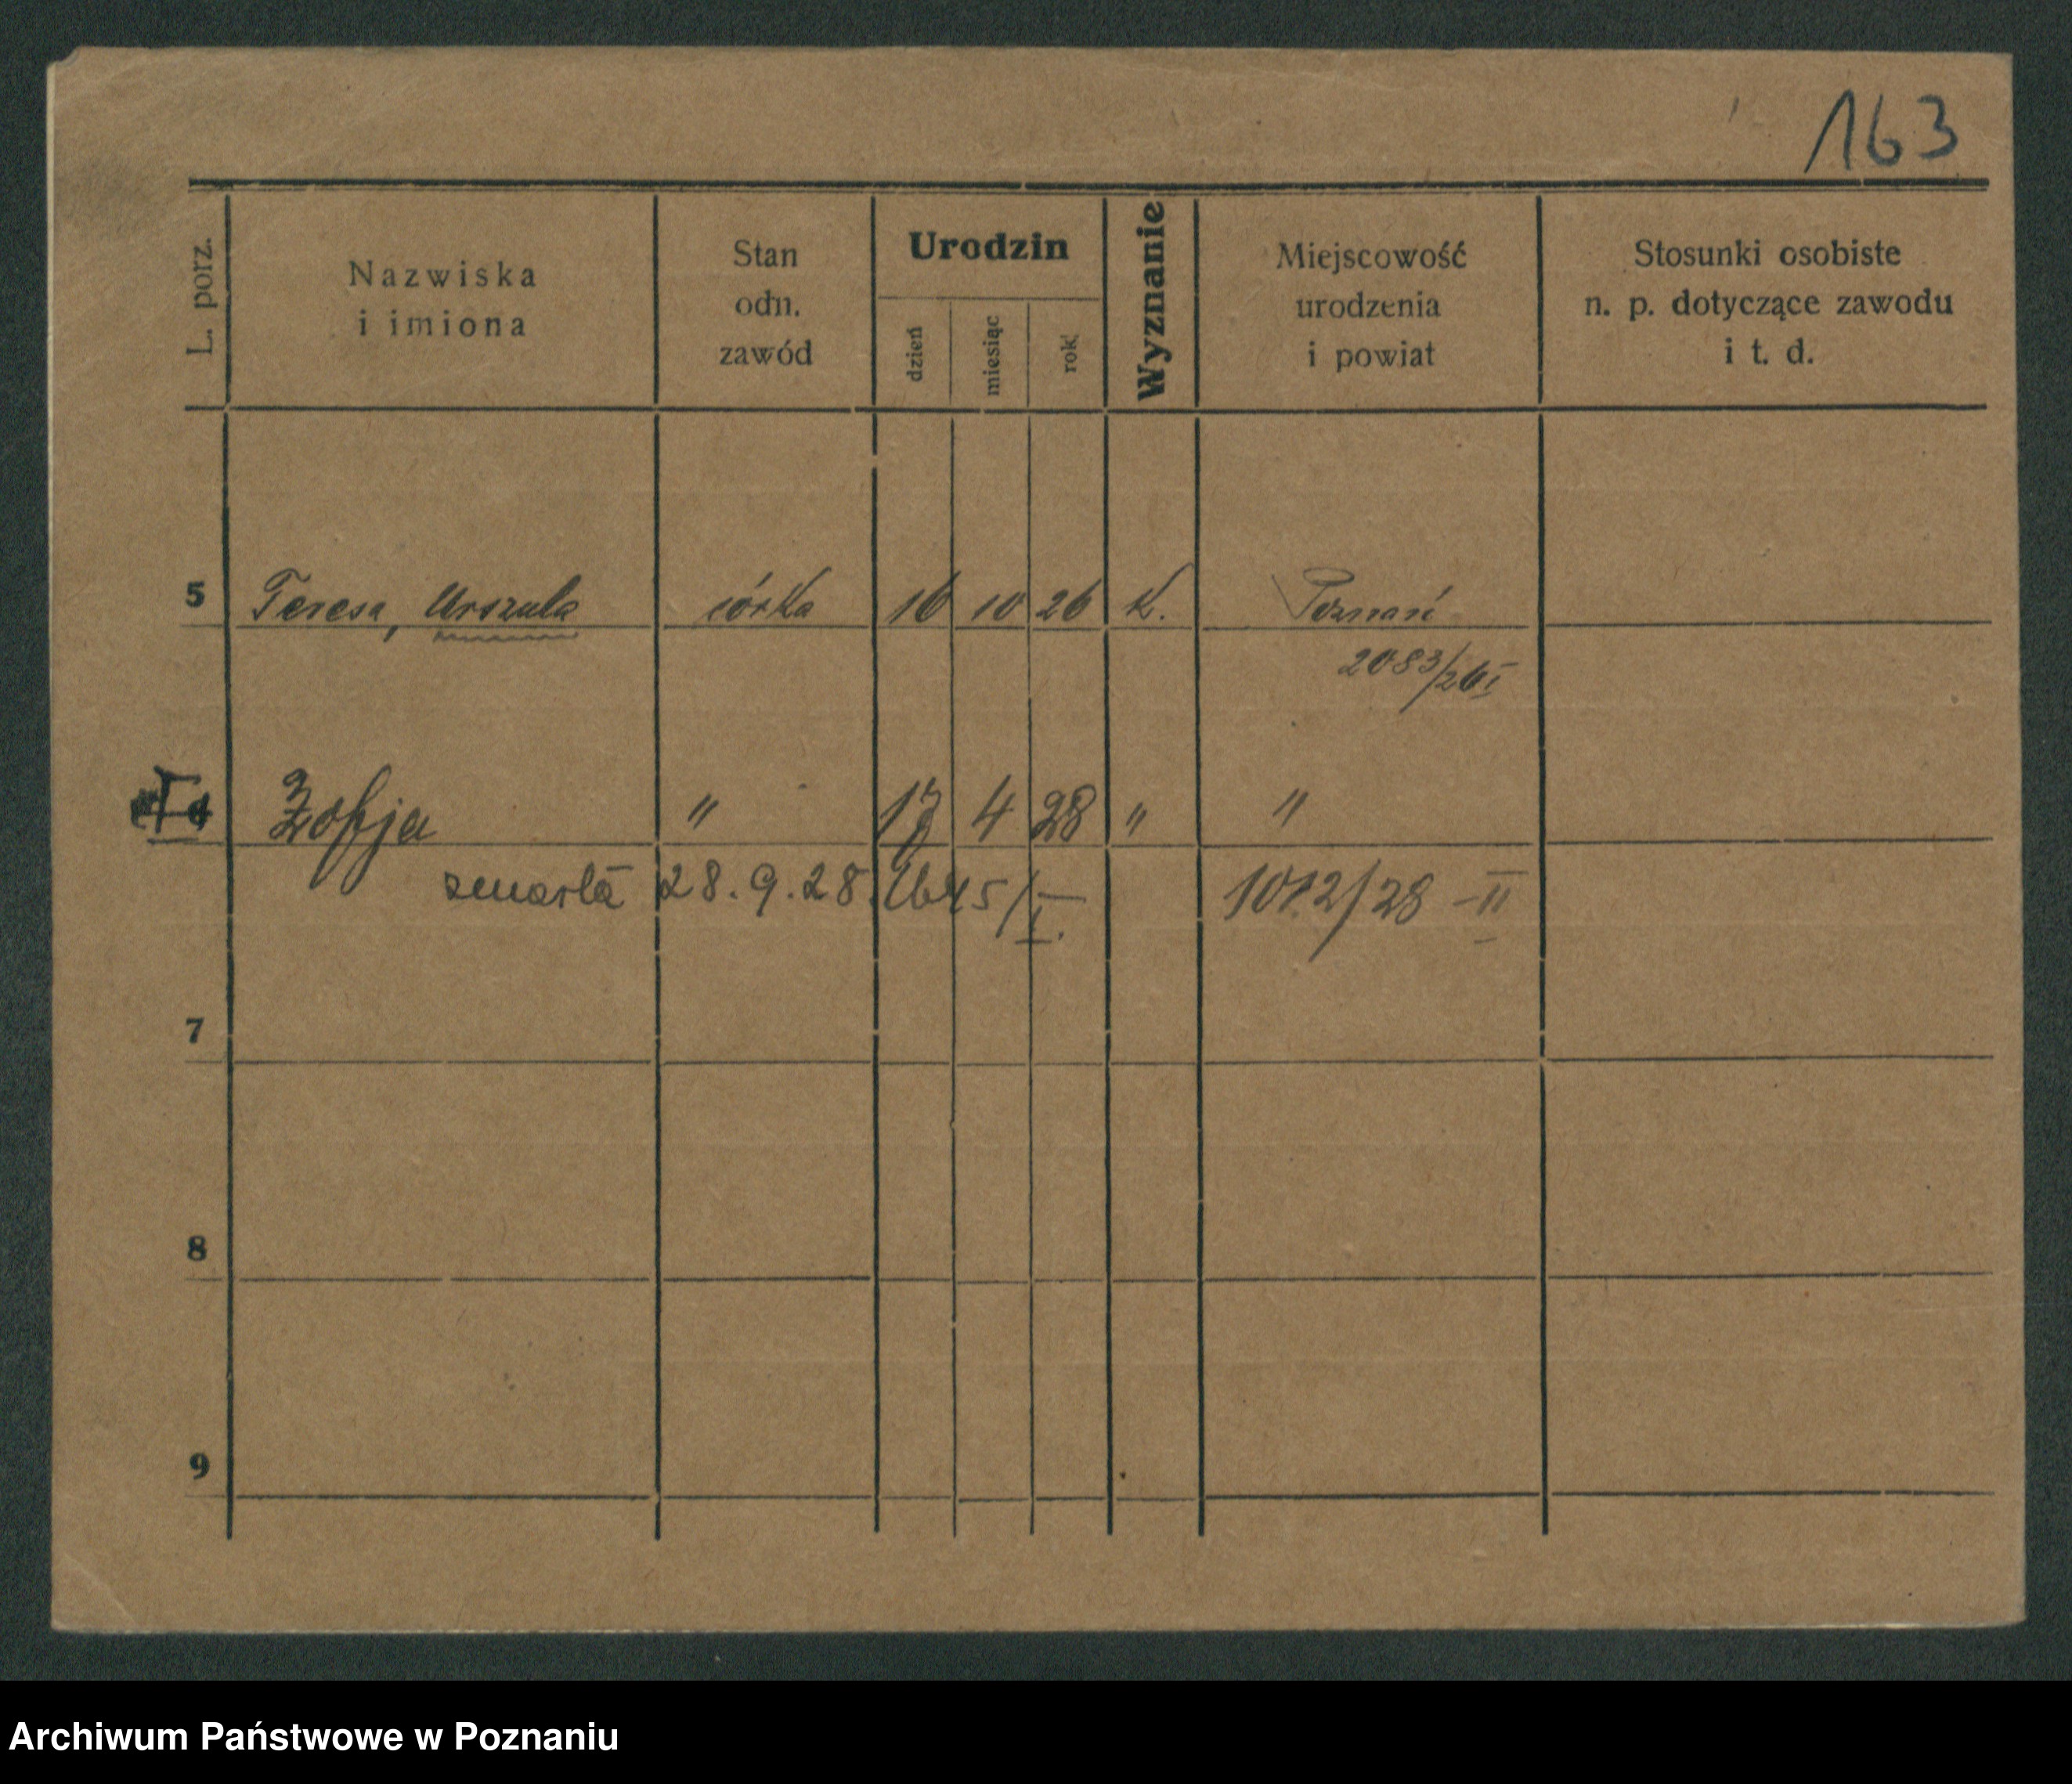 163
L. porz. Nazwiska i imiona Stan odn. zawód Urodzin dzień miesiąc rok Wyznanie Miejscowość urodzenia i powiat Stosunki osobiste n. p. dotyczące zawodu i t. d.
5 Teresa, Urszula córka 16 10 26 K. Poznań
2083/26 I
Zofja " 17 4 28 " "
zmarła 28.9.28. 1645/I. 1012/28 - II
7
8
9
Archiwum Państwowe w Poznaniu